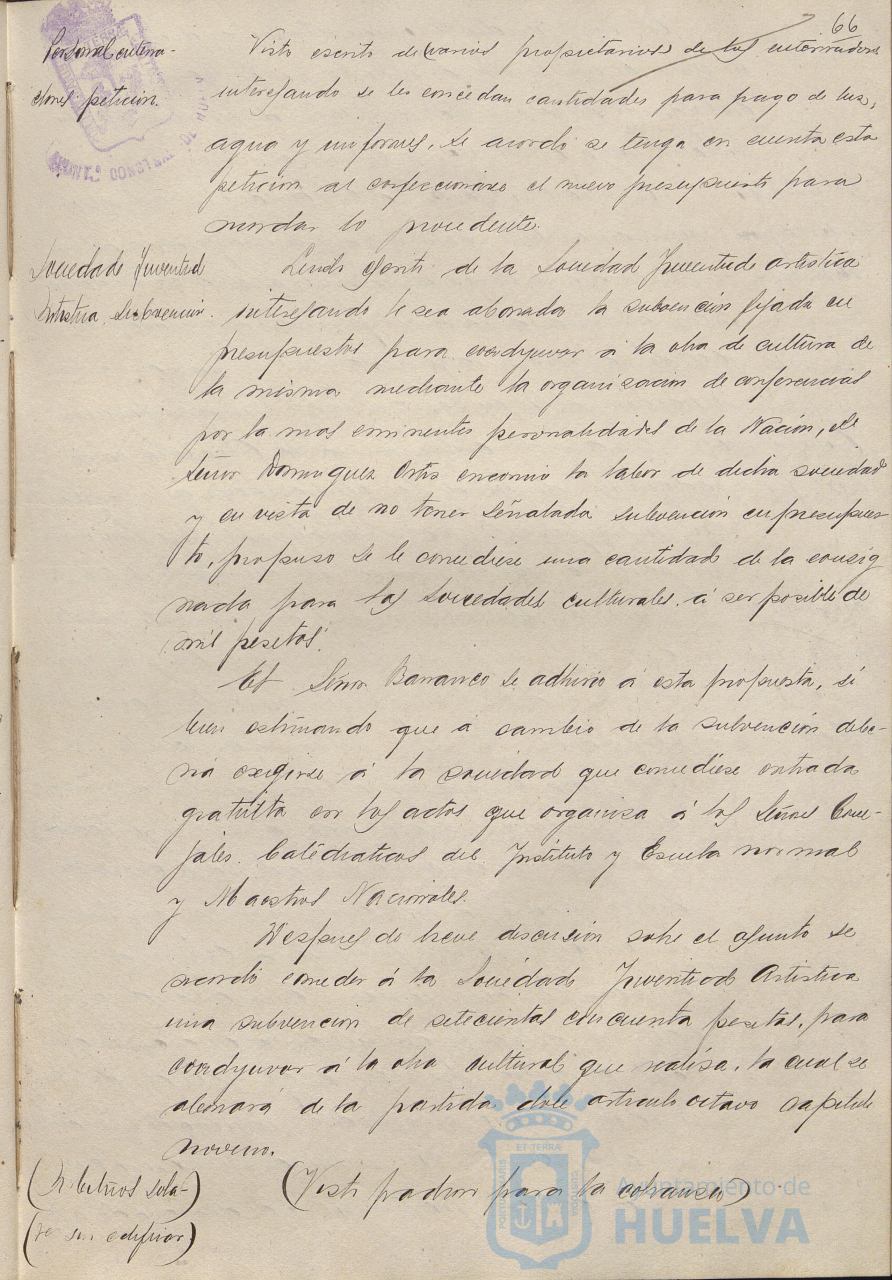 66
Personal entena-
dores petición.
Visto escrito de varios propietarios de los
interesando se les concedan cantidades para pago de luz,
agua y uniformes, se acordó se tenga en cuenta esta
petición al confeccionarse el nuevo presupuesto para
acordar lo procedente.
Sociedad Juventud
Artística, Subvención.
Leido escrito de la Sociedad Juventud artística
interesando le sea abonada la subvención fijada en
presupuestos para coadyuvar á la obra de cultura de
la misma mediante la organización de conferencias
por la mas eminentes personalidades de la Nación, el
Señor Dominguez Ortis encomió la labor de dicha sociedad
y en vista de no tener señalada subvención en presupues-
to, propuso se le concediese una cantidad de la consig
nada para las Sociedades culturales, á ser posible de
mil pesetas.
El Señor Barranco se adhirió á esta propuesta, si
bien estimando que á cambio de la subvención debe-
ria exigirse á la sociedad que concediese entrada
gratuita en los actos que organiza á los Señores Conce-
jales, Catedraticos del Instituto y Escuela normal
y Maestros Nacionales.
Despues de breve discusión sobre el asunto se
acordó conceder á la Sociedad Juventud Artistica
una subvencion de setecientas cincuenta pesetas, para
coadyuvar á la obra cultural que realisa, la cual se
abonará de la partida doce articulo octavo capitulo
noveno.
(Arbitrios sola-)
(res sin edificar)
(Visto padron para la cobranza)
Ayuntamiento de
HUELVA